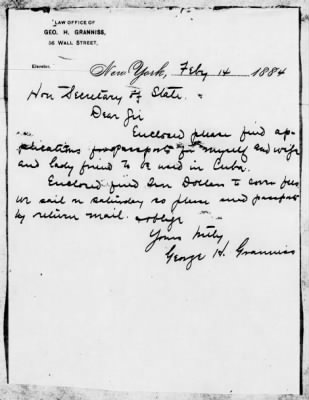 LAW OFFICE OF
GEO. H. GRANNISS,
56 WALL STREET,
Elevator.
New York, Feby 14 1884
Hon Secretary of State.
Dear Sir
Enclosed please find ap-
plications for passports for myself and wife
and lady friend to be used in Cuba.
Enclosed find Dollars to cover fees
we sail on Saturday so please send passports
by return mail & oblige
Yours truly
George H. Granniss